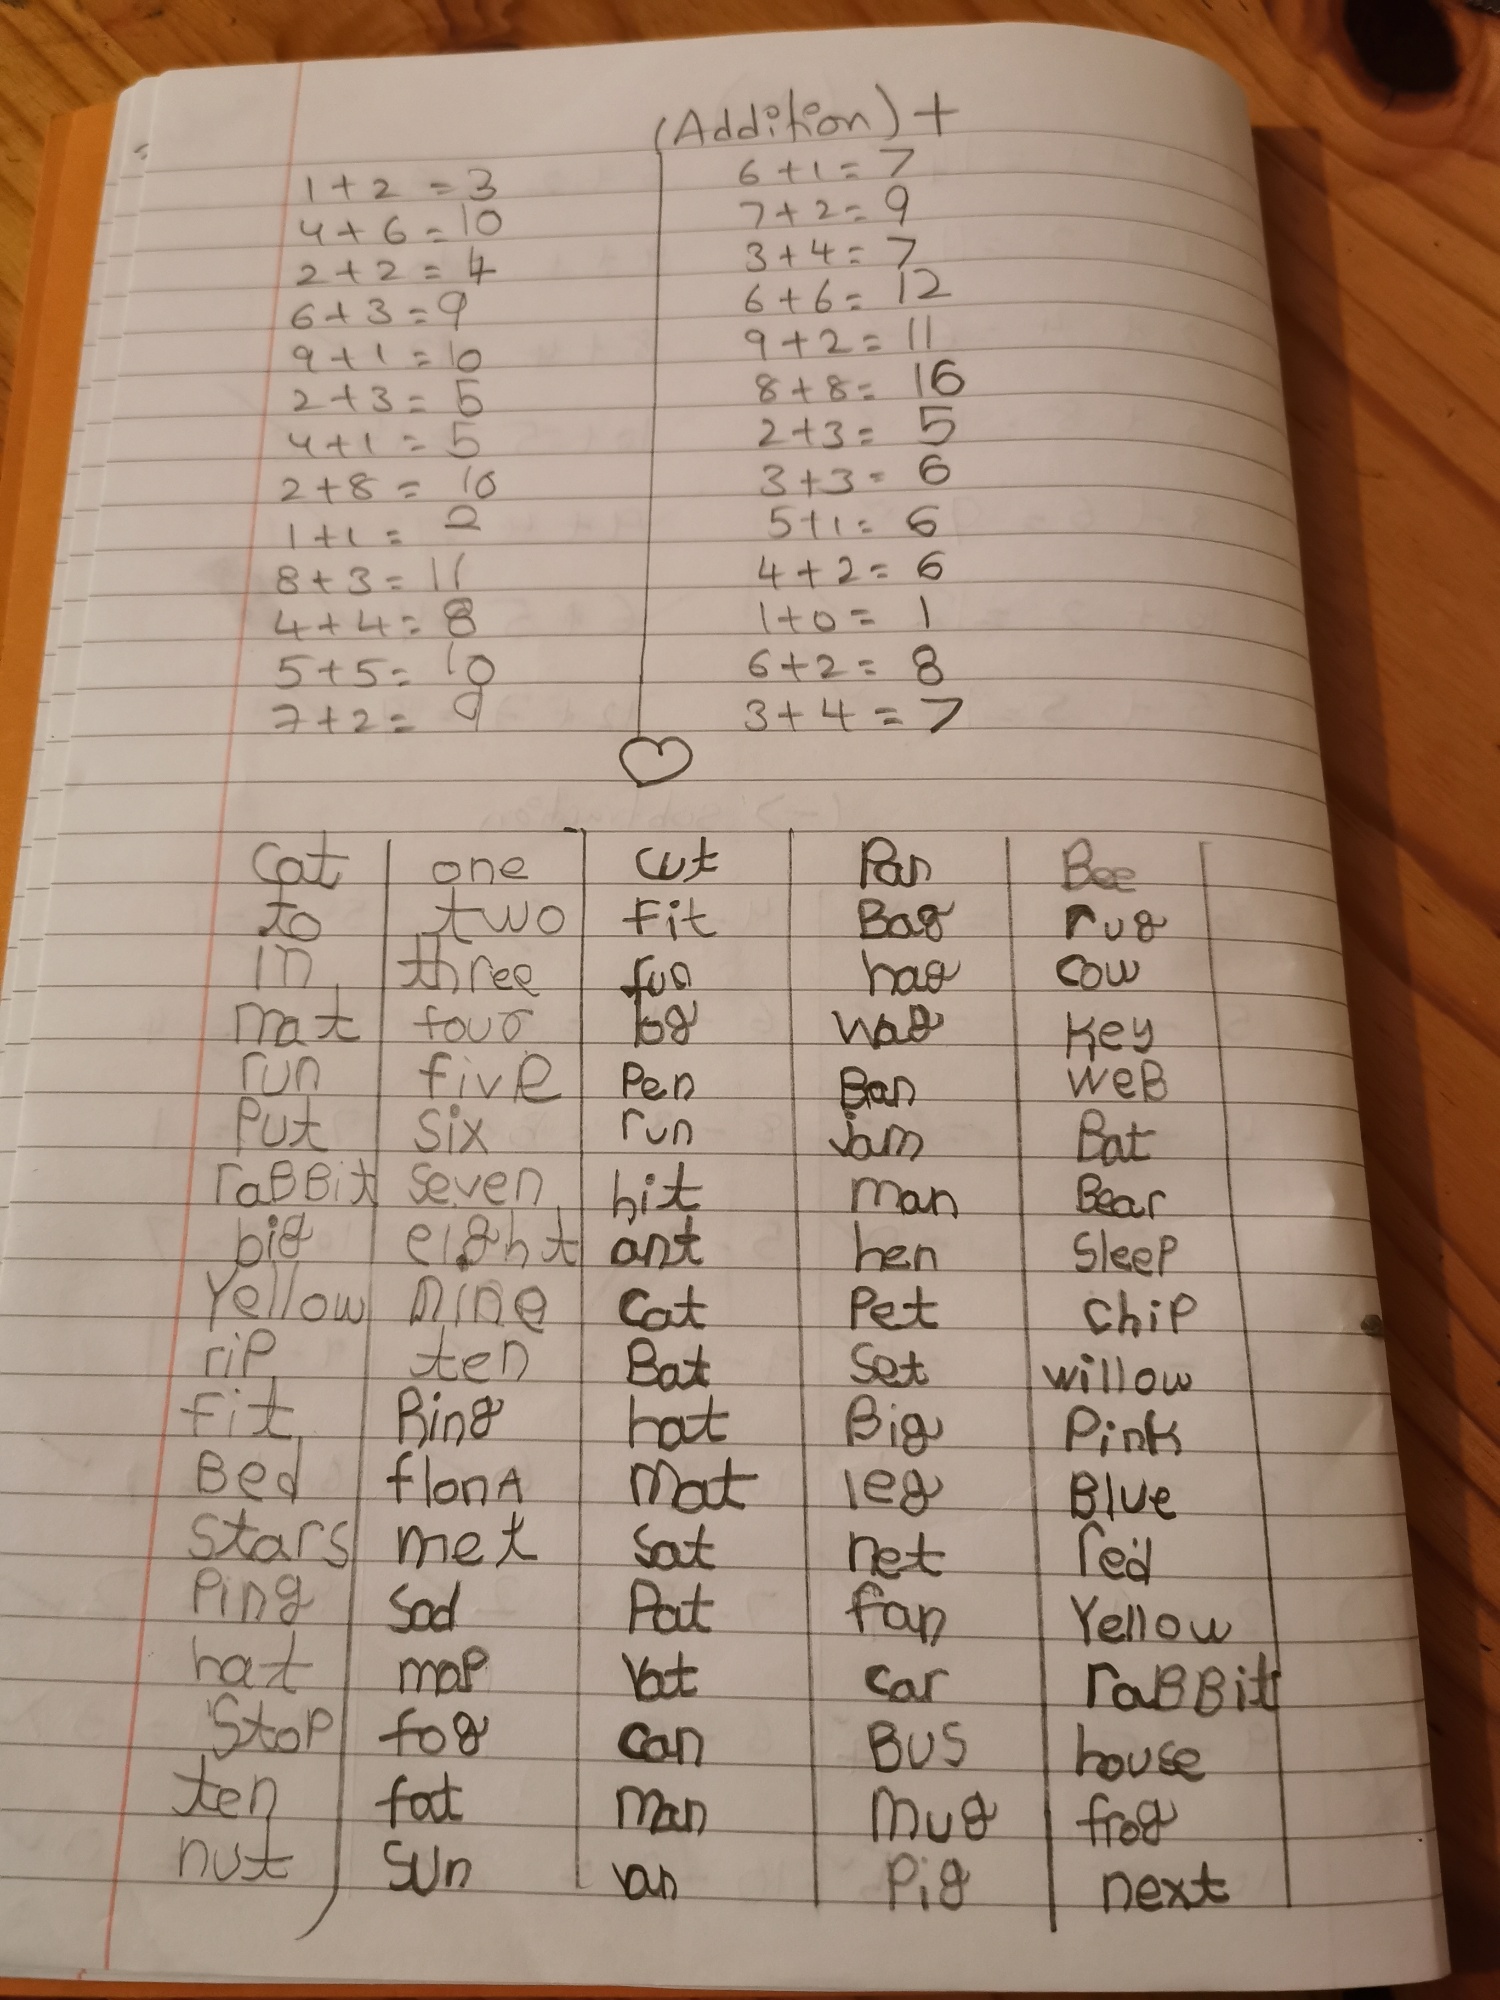 (Addition) +
1 + 2 = 3 6 + 1 = 7
4 + 6 = 10 7 + 2 = 9
2 + 2 = 4 3 + 4 = 7
6 + 3 = 9 6 + 6 = 12
9 + 1 = 10 9 + 2 = 11
2 + 3 = 5 8 + 8 = 16
4 + 1 = 5 2 + 3 = 5
2 + 8 = 10 3 + 3 = 6
1 + 1 = 2 5 + 1 = 6
8 + 3 = 11 4 + 2 = 6
4 + 4 = 8 1 + 0 = 1
5 + 5 = 10 6 + 2 = 8
7 + 2 = 9 3 + 4 = 7
Cat one cut Pan Bee
to two Fit Bag rug
In three fun hag cow
mat four log wag Key
run five Pen Ban WeB
Put six run jam Bat
raBBit seven hit man Bear
big eight ant hen Sleep
Yellow nine Cat Pet chip
rip ten Bat Set willow
Fit Ring hat Big Pink
Bed fIonA Mat leg Blue
Stars met Sat net red
Ping Sad Pat fan Yellow
hat map Vat car raBBit
Stop fog can BUS house
ten fat man mug frog
nut Sun van Pig next